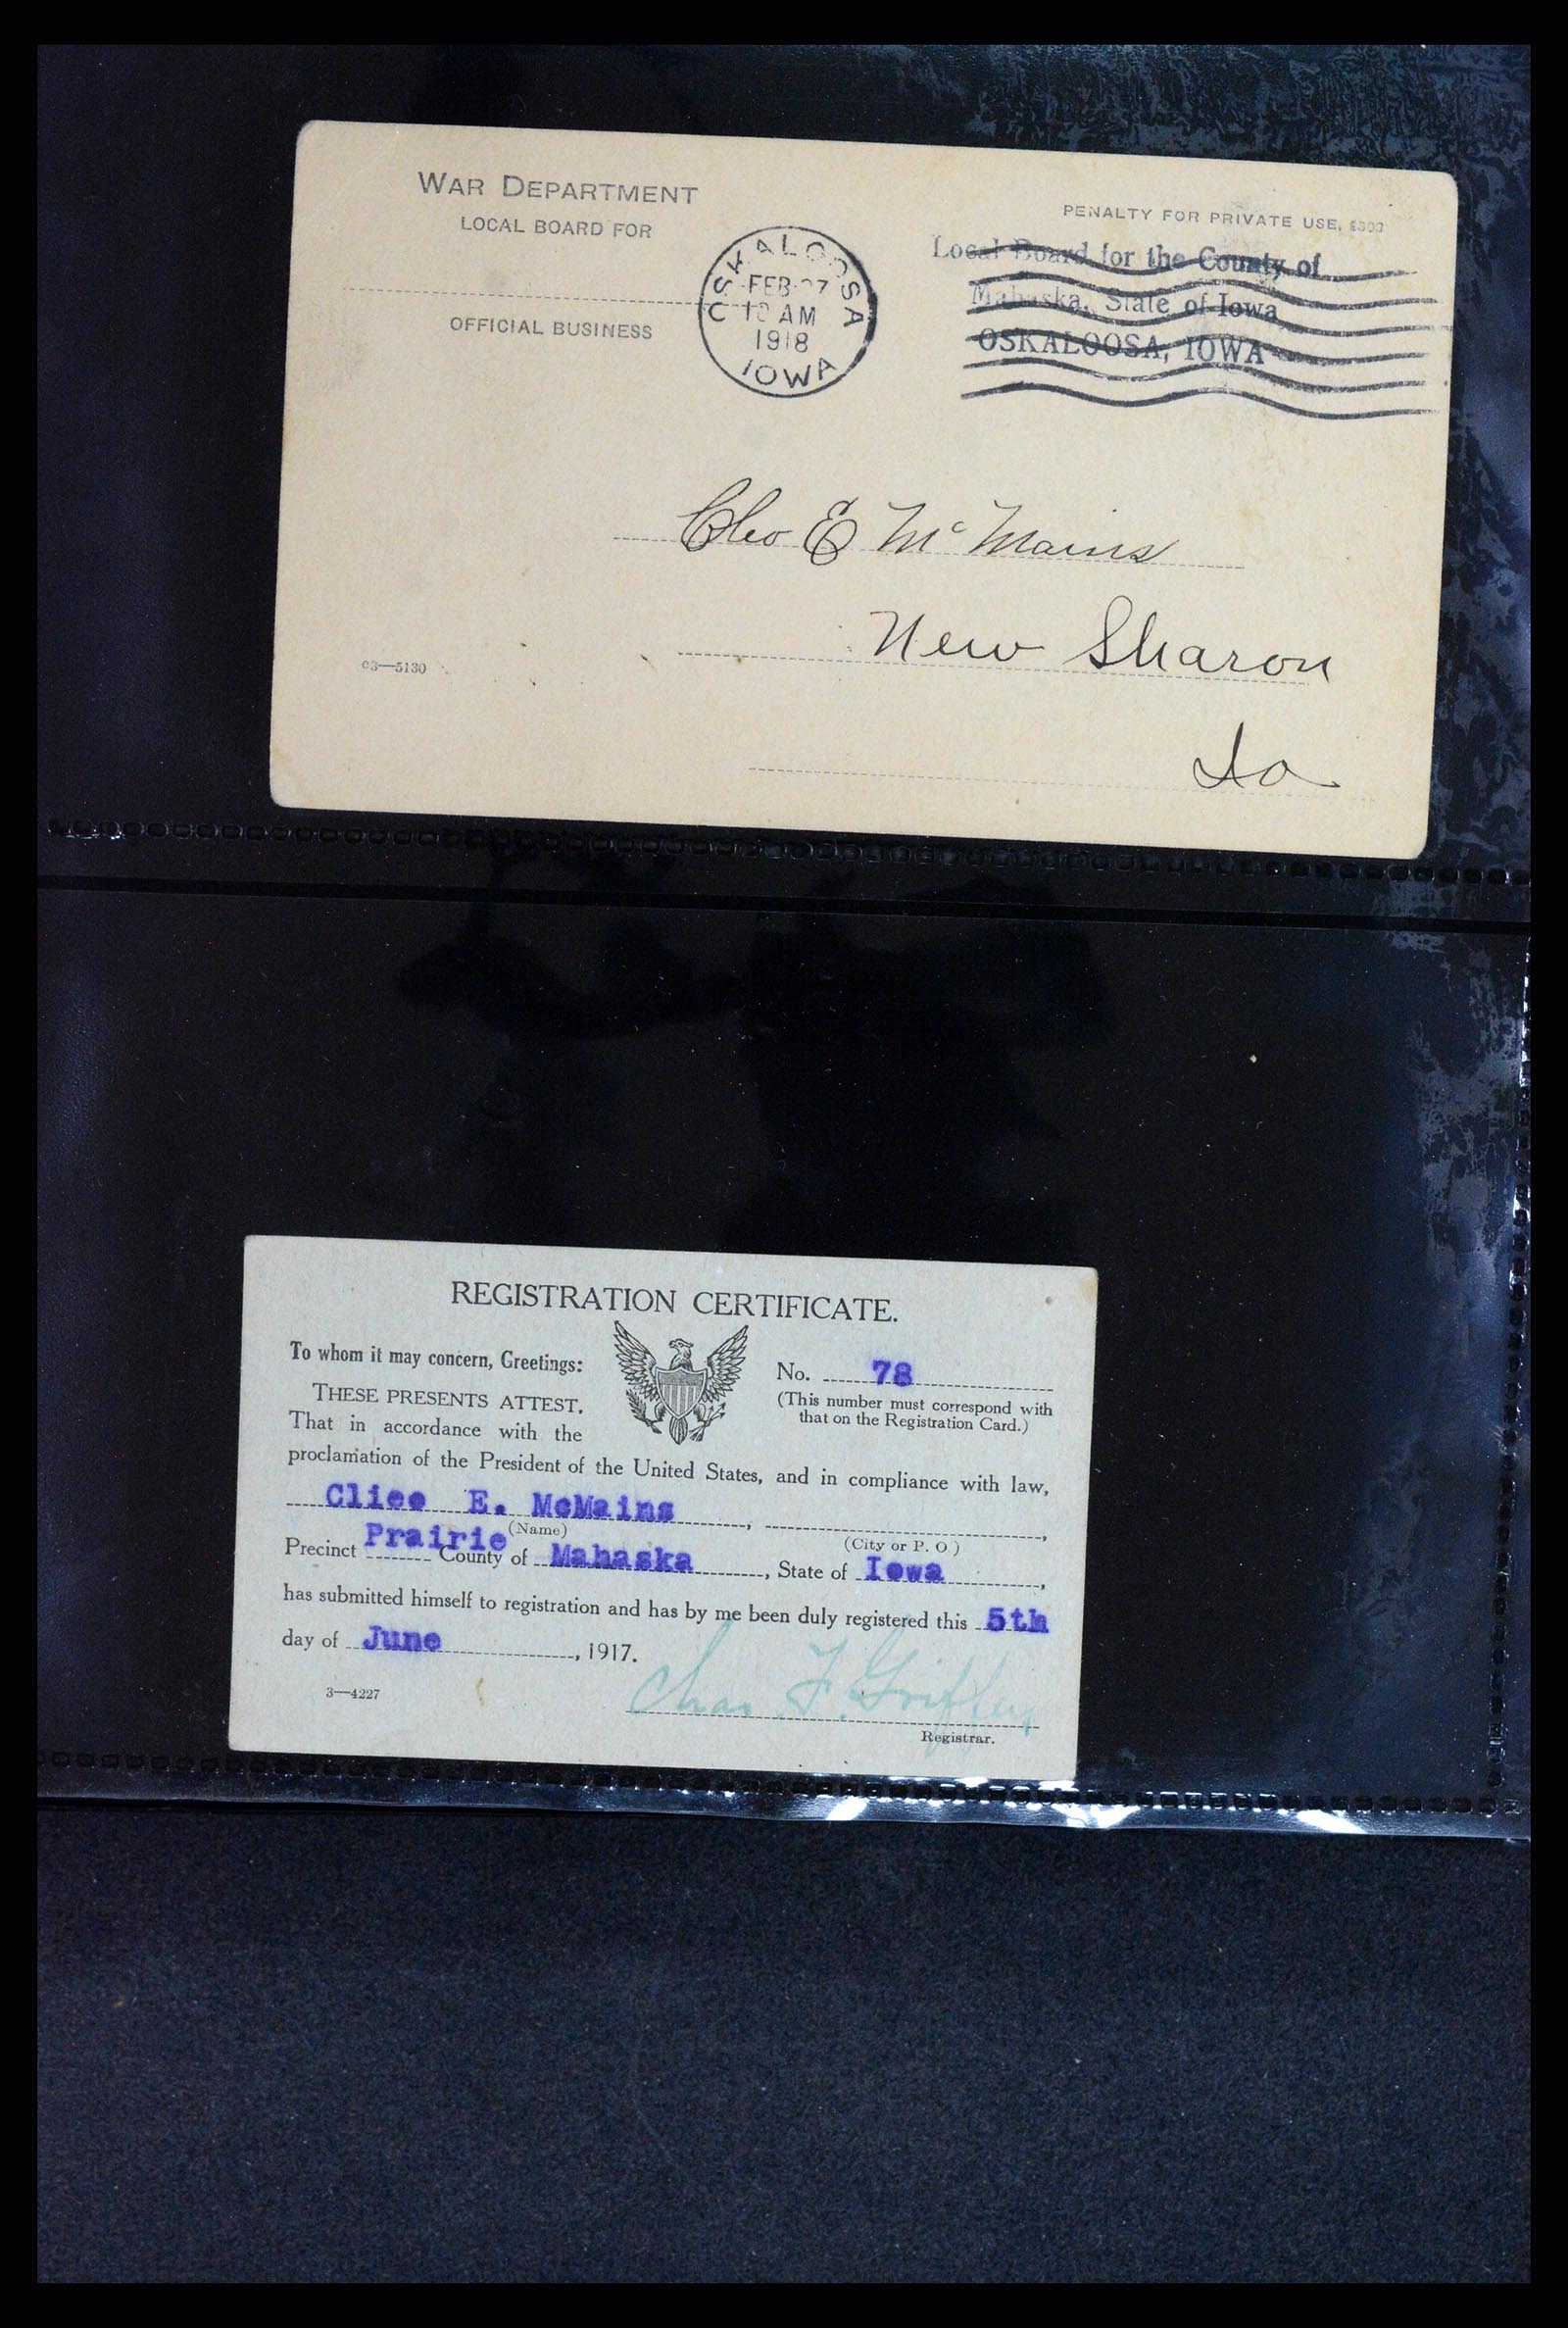 WAR DEPARTMENT
LOCAL BOARD FOR
OFFICIAL BUSINESS
OSKALOOSA
FEB 27
10 AM
1918
IOWA
PENALTY FOR PRIVATE USE, $300
Local Board for the County of
Mahaska, State of Iowa
OSKALOOSA, IOWA
Cleo E McMains
New Sharon
Ia
03—5130
REGISTRATION CERTIFICATE.
To whom it may concern, Greetings:
No. 78
THESE PRESENTS ATTEST,
(This number must correspond with
that on the Registration Card.)
That in accordance with the
proclamation of the President of the United States, and in compliance with law,
Clieo E. McMains , ,
(Name) (City or P. O)
Precinct Prairie County of Mahaska , State of Iowa ,
has submitted himself to registration and has by me been duly registered this 5th
day of June , 1917.
Chas. F. Griffin
3—4227
Registrar.